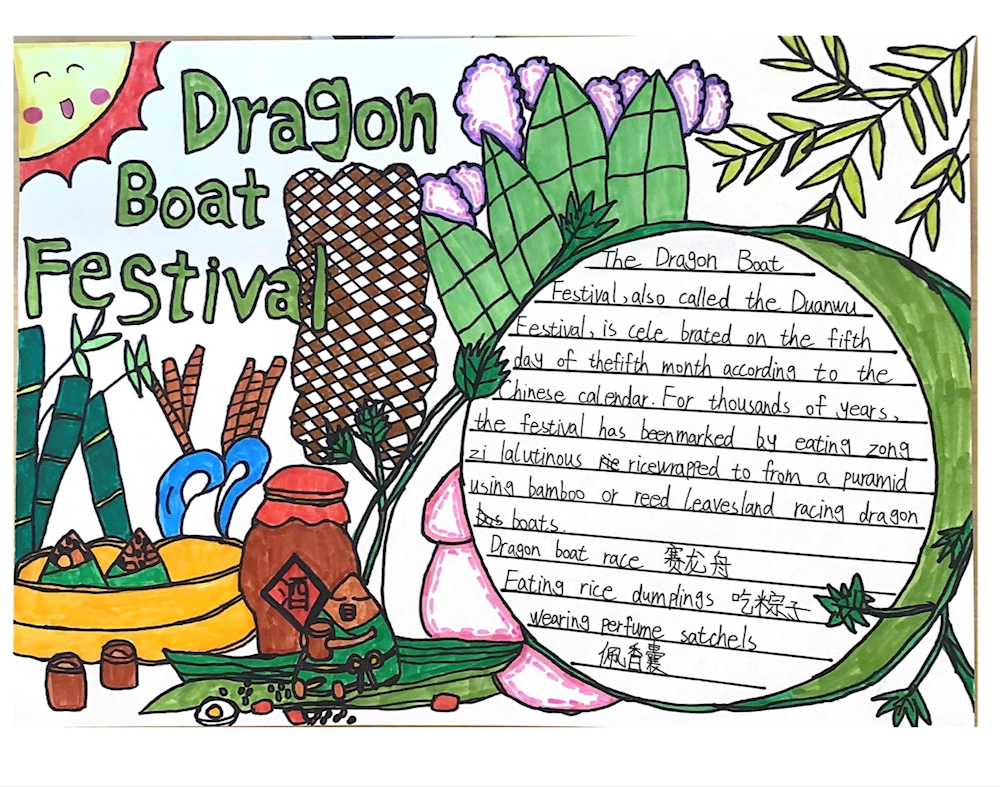 Dragon
Boat
Festival
The Dragon Boat
Festival, also called the Duanwu
Festival, is cele brated on the fifth
day of thefifth month according to the
Chinese calendar. For thousands of years,
the festival has beenmarked by eating zong
zi lalutinous ricewrapped to from a puramid
using bamboo or reed leavesland racing dragon
boats.
Dragon boat race 赛龙舟
Eating rice dumplings 吃粽子
wearing perfume satchels
佩香囊
酒